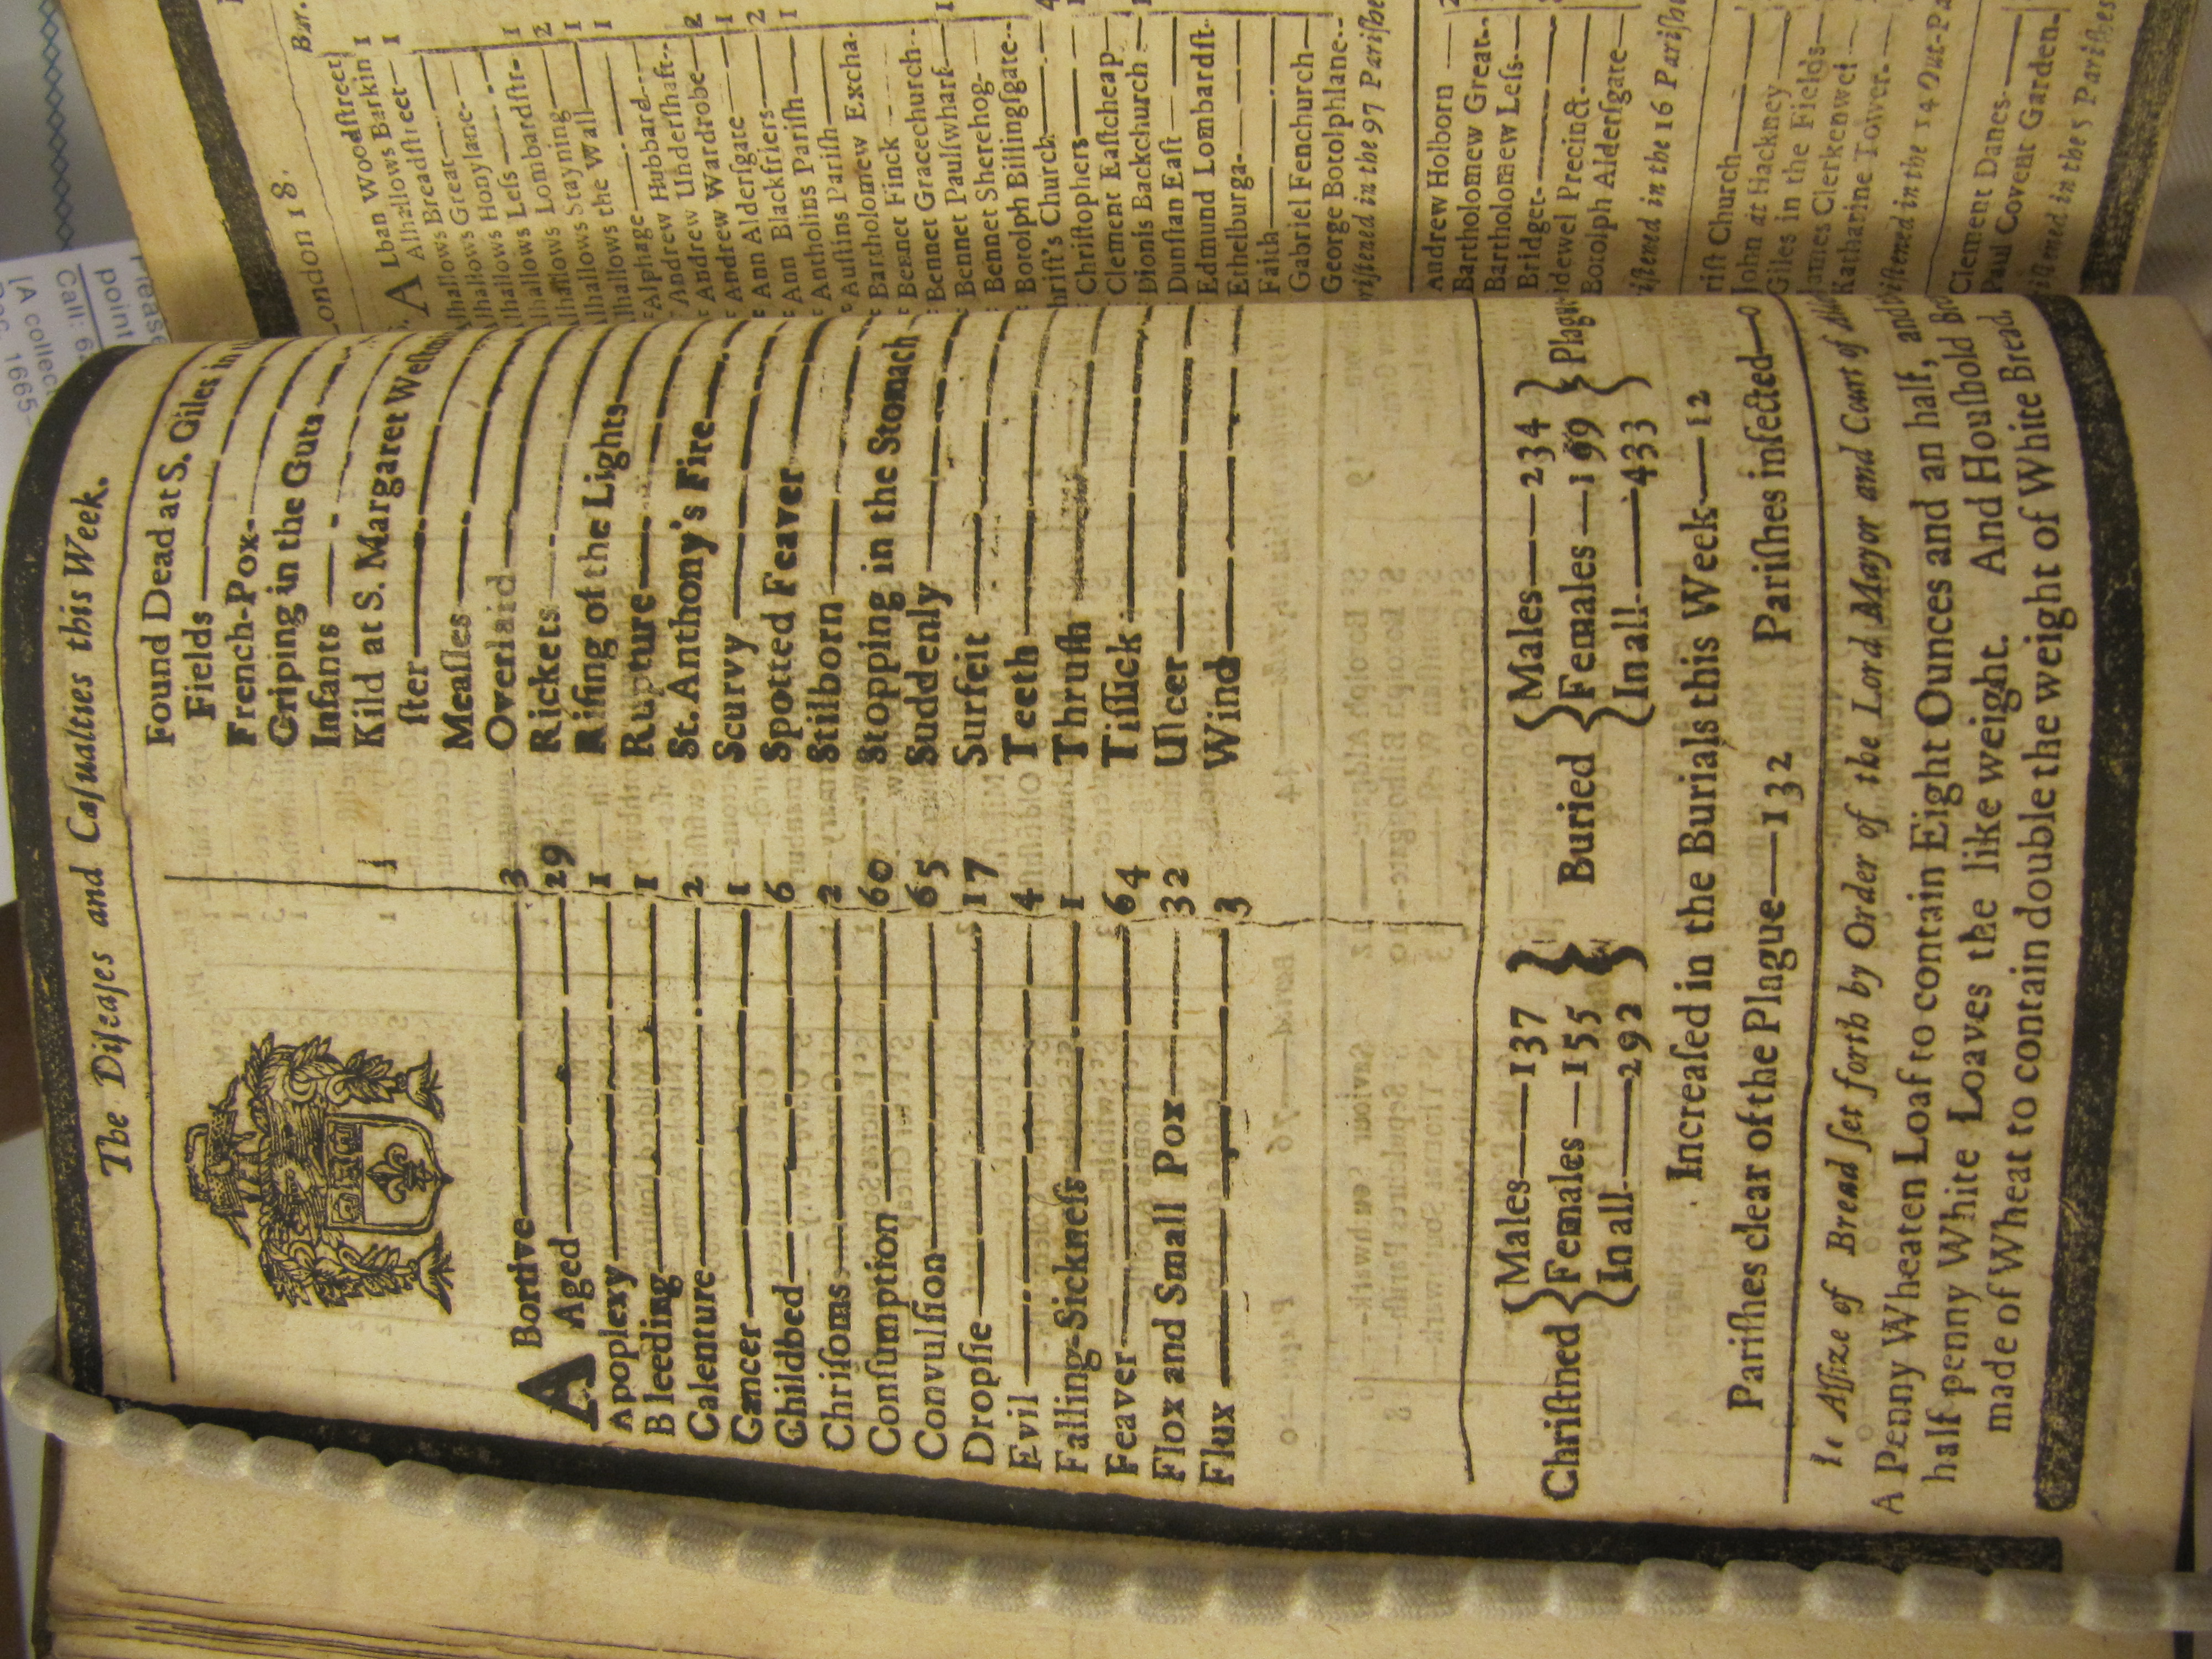 The Diſeaſes and Caſualties this Week.
ABortive 3
Aged 29
Apoplexy 1
Bleeding 1
Calenture 2
Cancer 1
Childbed 6
Chriſoms 2
Conſumption 60
Convulſion 65
Dropſie 17
Evil 4
Falling-Sickneſs 1
Feaver 64
Flox and Small Pox 32
Flux 3
Found Dead at S. Giles in
Fields
French-Pox
Griping in the Guts
Infants
Kild at S. Margaret Weſtm
ſter
Meaſles
Overlaid
Rickets
Riſing of the Lights
Rupture
St. Anthony's Fire
Scurvy
Spotted Feaver
Stilborn
Stopping in the Stomach
Suddenly
Surfeit
Teeth
Thruſh
Tiſſick
Ulcer
Wind
Chriſtned { Males—137 Females—155 In all—292 } Buried { Males—234 Females—199 In all—433 } Plague
Increaſed in the Burials this Week—12
Pariſhes clear of the Plague—132 Pariſhes infected—0
Aſſize of Bread ſet forth by Order of the Lord Mayor and Court of
A Penny Wheaten Loaf to contain Eight Ounces and an half, and
half-penny White Loaves the like weight. And Houſhold
made of Wheat to contain double the weight of White Bread.
London 18.
Bur.
ALban Woodſtreet
Alhallows Barkin 1
Alhallows Breadſtreet 1
lhallows Great
lhallows Honylane
lhallows Leſs
lhallows Lombardſtr 1
lhallows Stayning 2
lhallows the Wall 1
Alphage 1
Andrew Hubbard
Andrew Underſhaft
Andrew Wardrobe 2
Ann Alderſgate 1
Ann Blackfriers 2
Antholins Pariſh 1
Auſtins Pariſh
Bartholomew Excha
Bennet Finck
Bennet Gracechurch
Bennet Paulſwharf 1
Bennet Sherehog
Botolph Billingſgate
hriſt's Church 4
Chriſtophers
Clement Eaſtcheap
Dionis Backchurch
Dunſtan Eaſt
Edmund Lombardſt
Ethelburga
Faith
Gabriel Fenchurch
George Botolphlane
riſtened in the 97 Pariſhe
Andrew Holborn
Bartholomew Great
Bartholomew Leſs
Bridget
idewel Precinct
Botolph Alderſgate
iſtened in the 16 Pariſh
riſt Church
John at Hackney
Giles in the Fields
James Clerkenwel
Katharine Tower
iſtened in the 14 Out-Pa
Clement Danes
Paul Covent Garden
iſtened in the 5 Pariſhes
[A collec
1665-